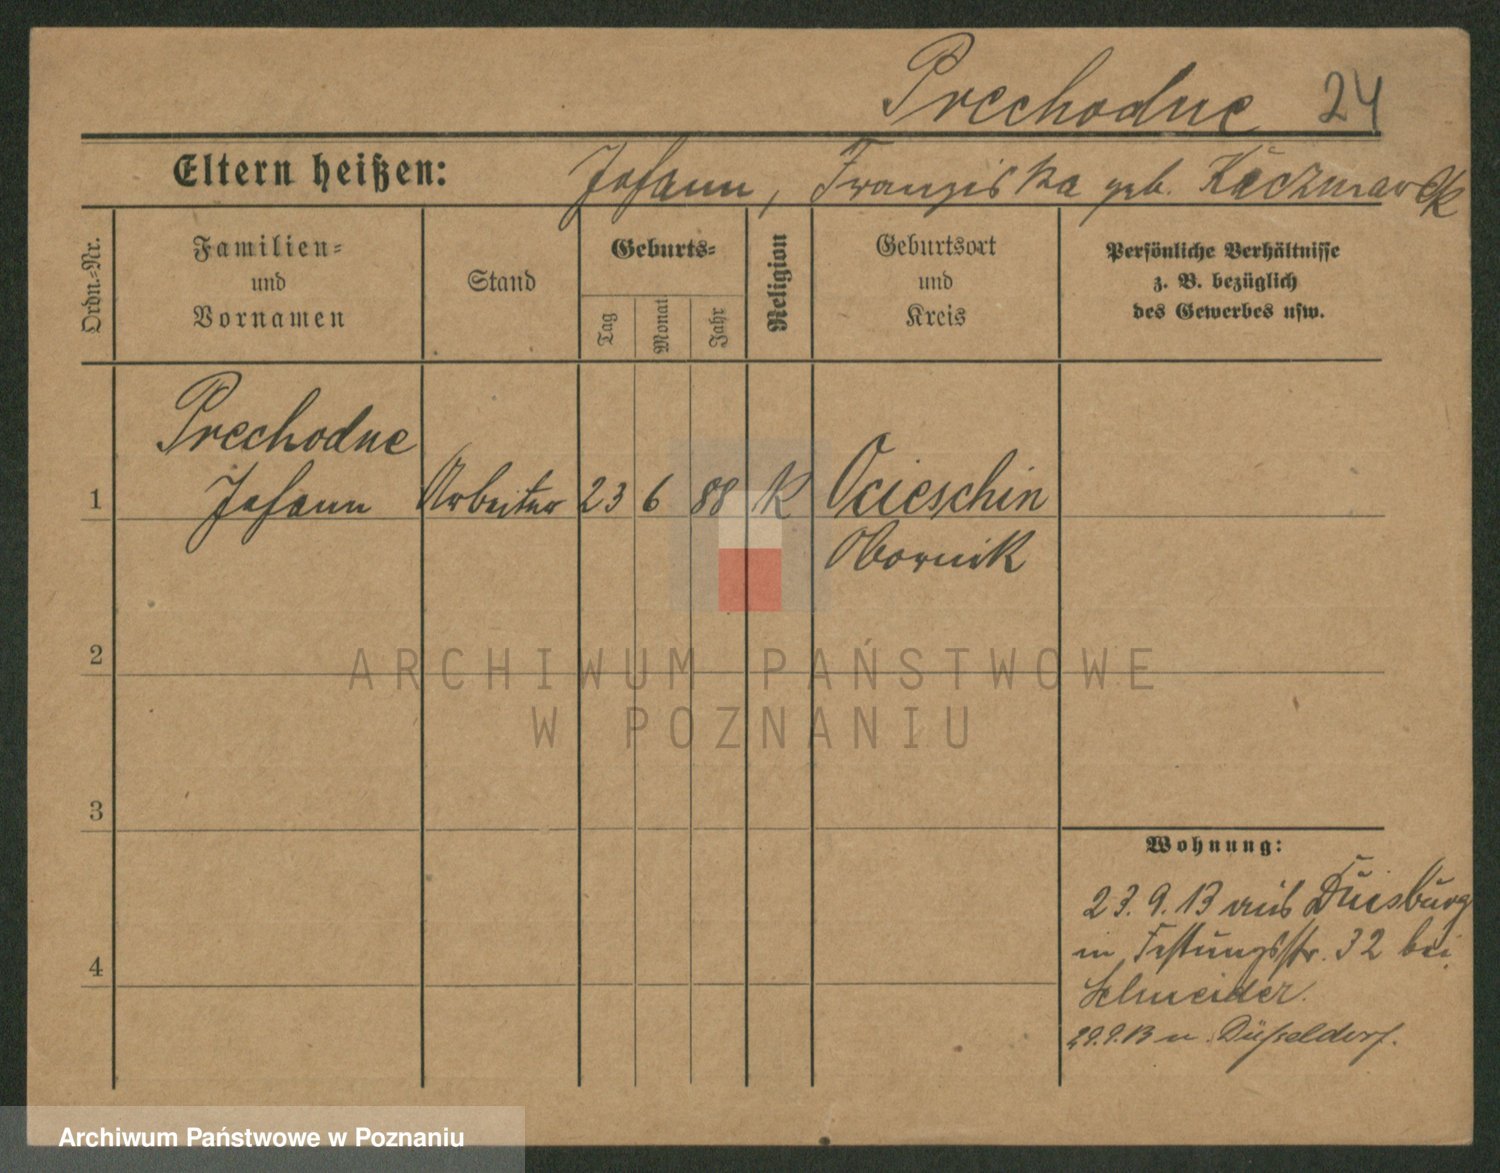 Prechodne 24
Eltern heißen: Johann, Franziska geb. Kaczmarek
Ordn.-Nr.
Familien-
und
Vornamen
Stand
Geburts-
Tag
Monat
Jahr
Religion
Geburtsort
und
Kreis
Persönliche Verhältnisse
z. B. bezüglich
des Gewerbes usw.
Prechodne
1 Johann Arbeiter 23 6 88 K Ocieschin
Obornik
2
ARCHIWUM PAŃSTWOWE
W POZNANIU
3
Wohnung:
23.9.13 aus Duisburg
in Festungsstr. 32 bei
Schneider.
4
29.9.13 n. Düsseldorf.
Archiwum Państwowe w Poznaniu